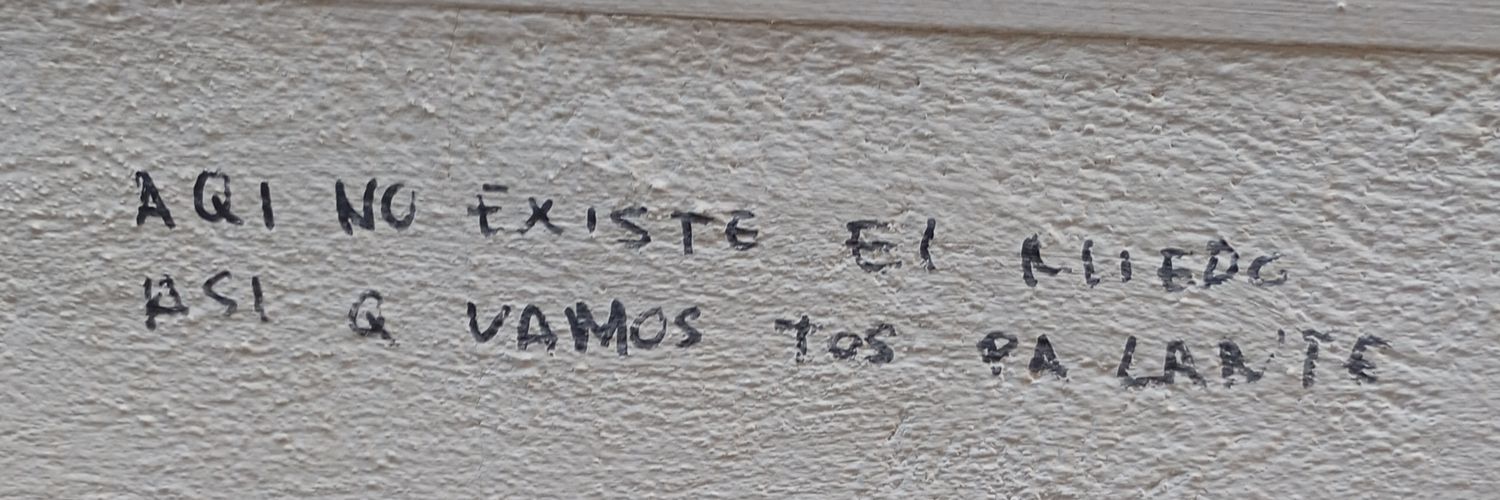 AQI NO EXISTE El MIEDO
ASI Q VAMOS TOS PA LANTE